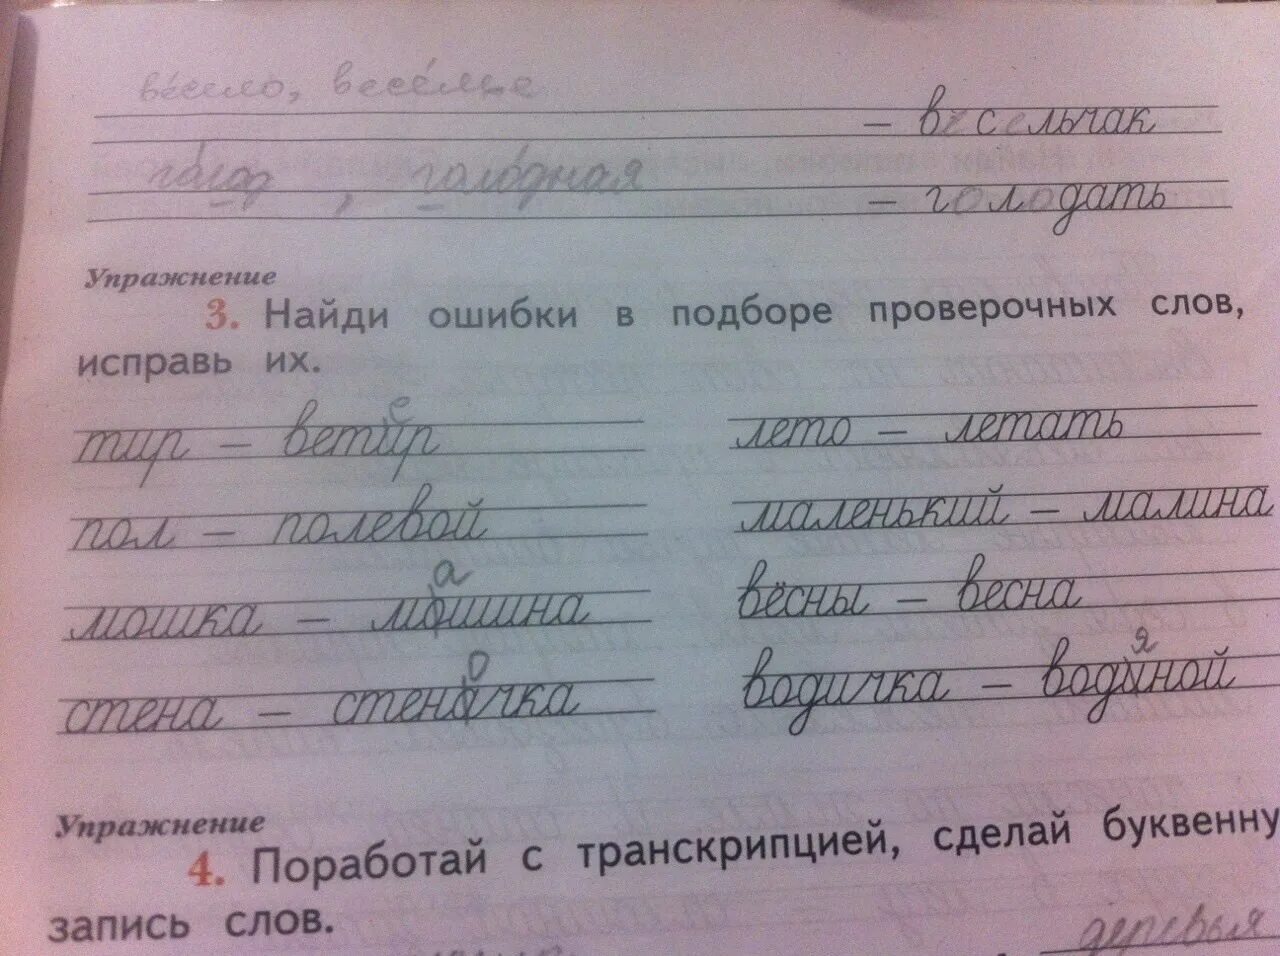 весело, веселье
– весельчак
голод, голодная
– голодать
Упражнение
3. Найди ошибки в подборе проверочных слов,
исправь их.
е
тир – ветир лето – летать
пол – полевой маленький – малина
а
мошка – мошина вёсны – весна
о я
стена – стеначка водичка – водиной
Упражнение
4. Поработай с транскрипцией, сделай буквенну
запись слов.
деревья